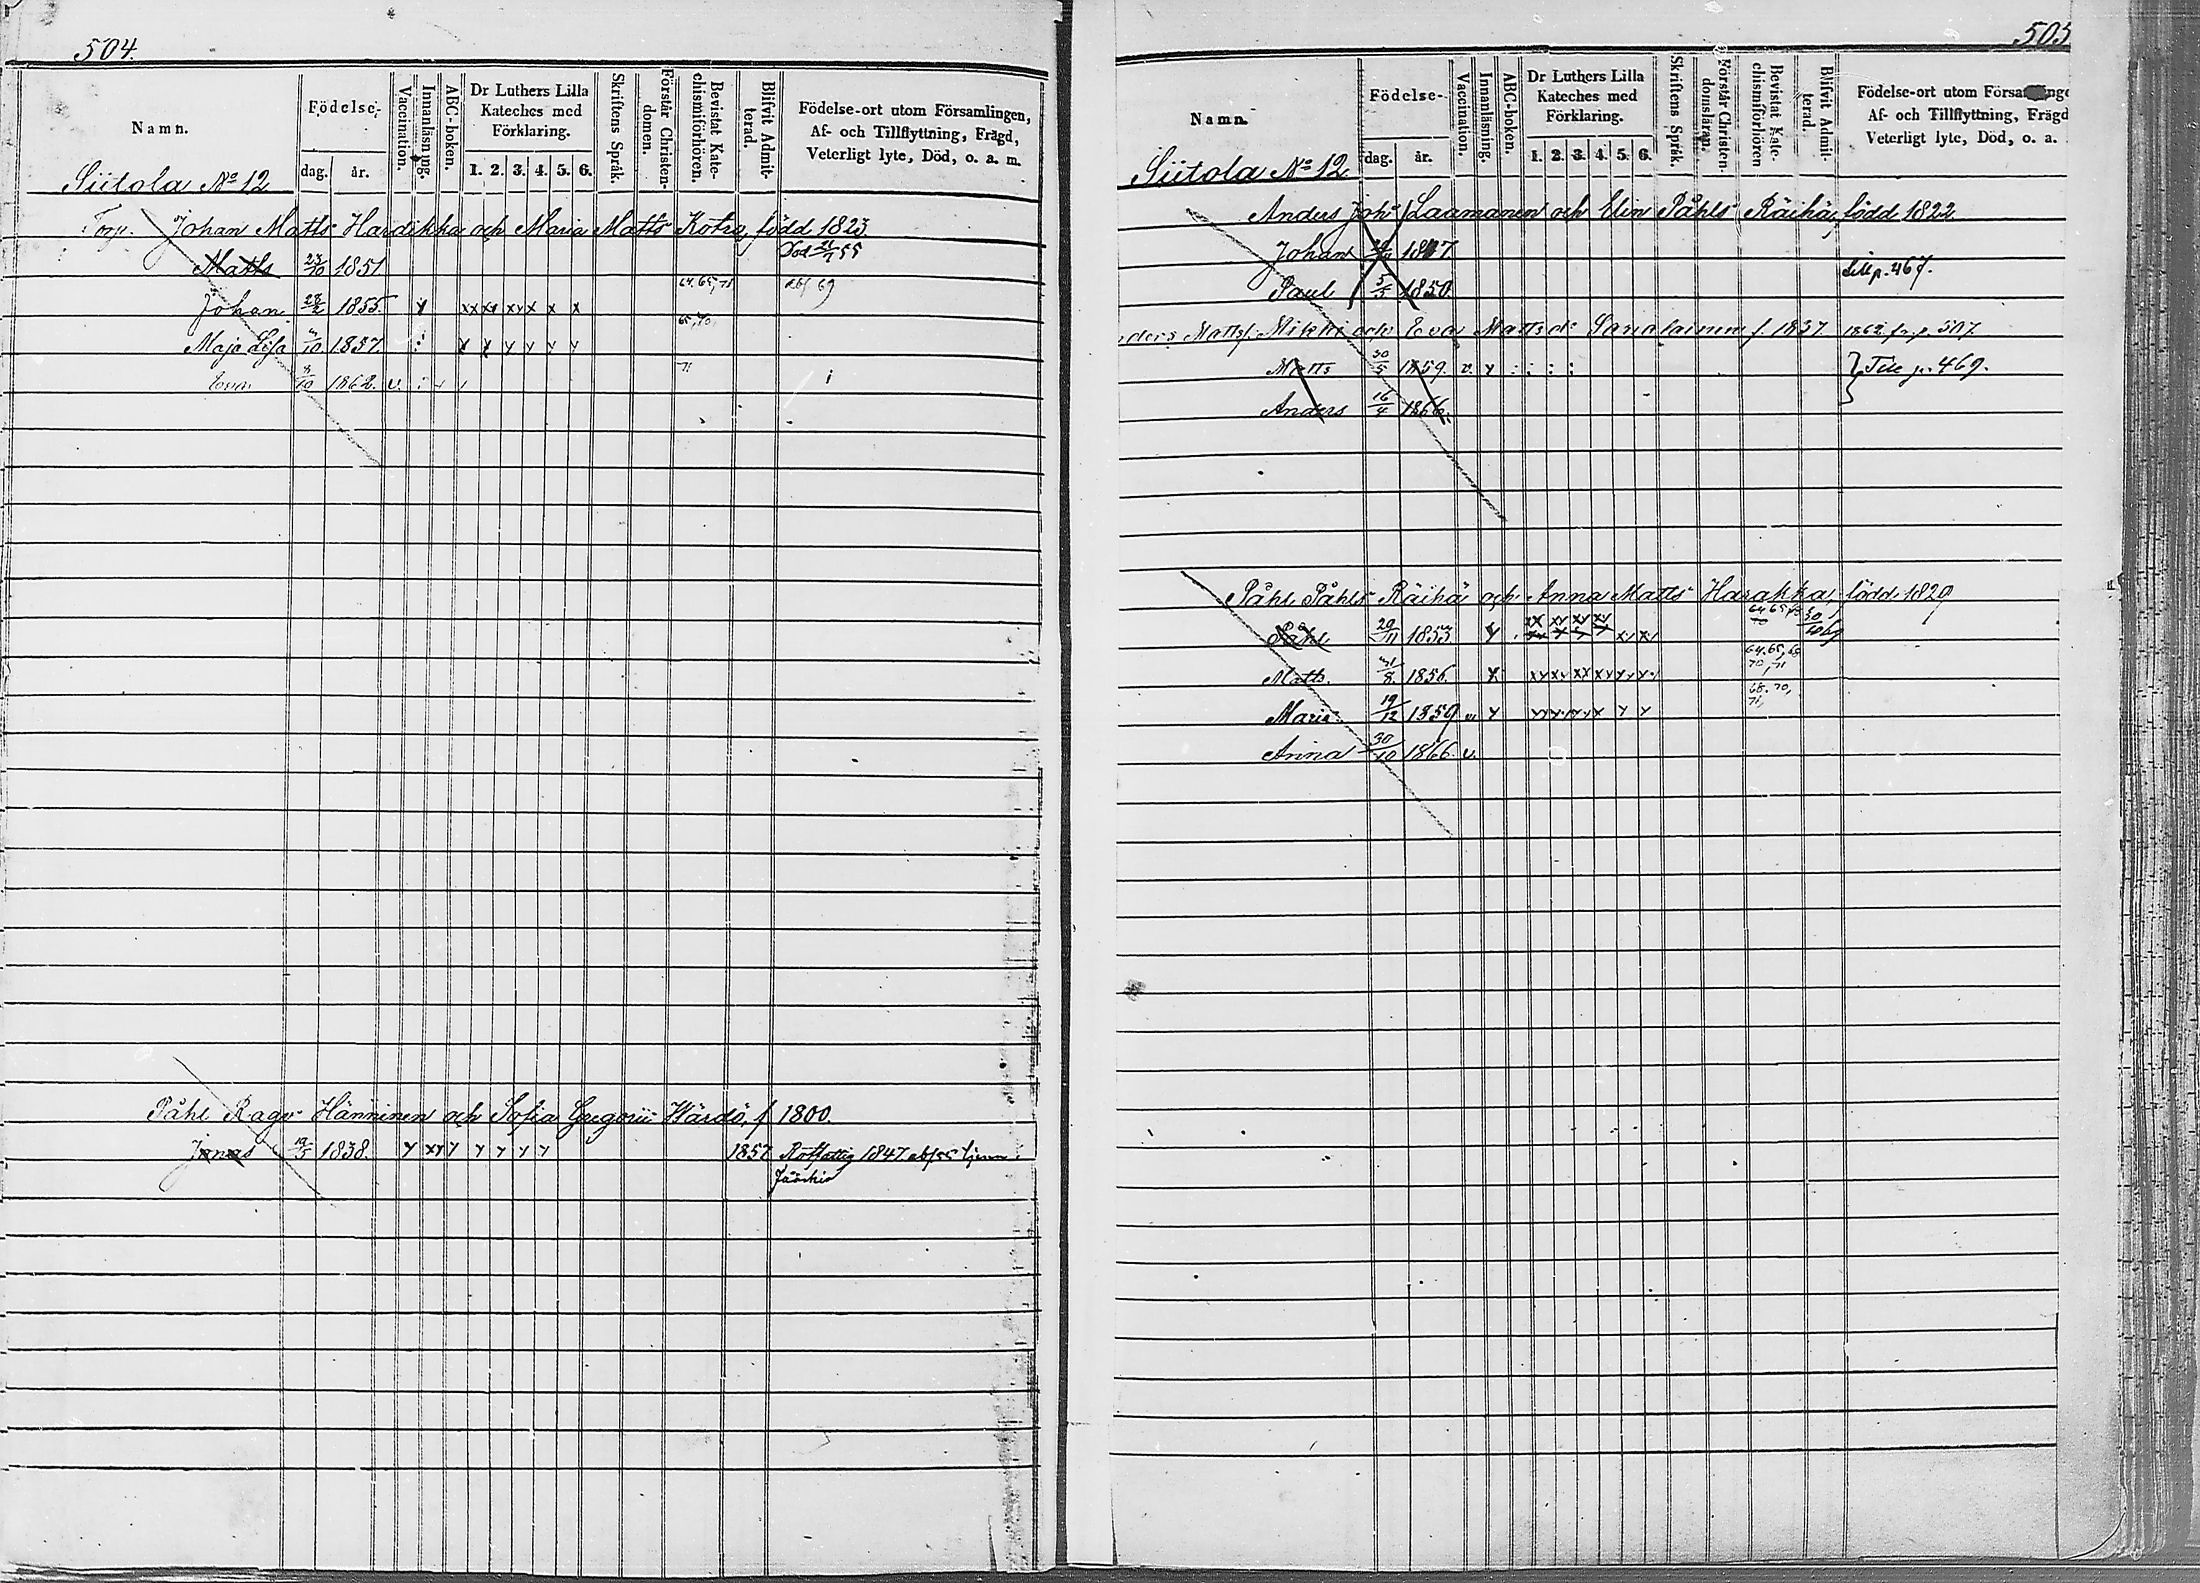 504.
Namn.
Födelse-
dag.
år.
Vaccination.
Innanläsning.
ABC-boken.
Dr Luthers Lilla
Kateches med
Förklaring.
1. 2. 3. 4. 5. 6.
Skriftens Språk.
Förstår Christen-
domen.
Bevistat Kate-
chismiförhören.
Blifvit Admit-
terad.
Födelse-ort utom Församlingen,
Af- och Tillflyttning, Frägd,
Veterligt lyte, Död, o. a. m.
Siitola No 12
Johan Matts Hardikka och Maria Matts Kotra, född 1823
Matts 23/10 1851 Död 55
Johan 28/2 1855. x xx xx xx x x x 64, 65, 71 69
Maja Lisa 1857. x x y y y y 65, 70,
Eva 8/10 1862. v. 71
Påhl Hänninen och Sofia Gregorii Härdö, f 1800.
Jonas 19/5 1838. y xy y y y y y 1857 1847
Jääskis
505
Namn.
Födelse-
dag.
år.
Vaccination.
Innanläsning.
ABC-boken.
Dr Luthers Lilla
Kateches med
Förklaring.
1. 2. 3. 4. 5. 6.
Skriftens Språk.
Förstår Christen-
domsläran.
Bevistat Kate-
chismiförhören
Blifvit Admit-
terad.
Födelse-ort utom
Af- och Tillflyttning, Frägd
Veterligt lyte, Död, o. a.
Siitola No 12
Anders Joh: Laamanen och Elin Påhls Räihä, född 1822
Johan 1847
Paul 5/5 1850. p. 467.
Matts. Mikki och Eva Mattsdr f 1837 1862 fr. p. 507
Matts 30/5 1859. v. y
Till p. 469.
Anders 16/4 1866.
Påhl Påhls Räihä och Anna Matts Harakka, född 1829
Påhl 29/11 1853 y xx xy xy xy 64 65
Matts. 31/8. 1856. x xy xy xx xy xy y 64. 65, 68 70, 71
Maria 19/12 1859 v y 68. 70, 71,
Anna 30/10 1866. v.